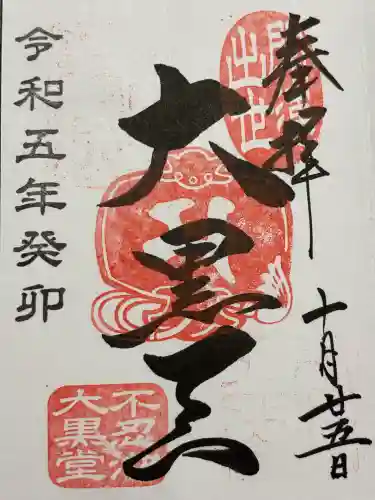 奉拝
十月廿五日
出世
大黒天
不忍池
大黒堂
令和五年癸卯